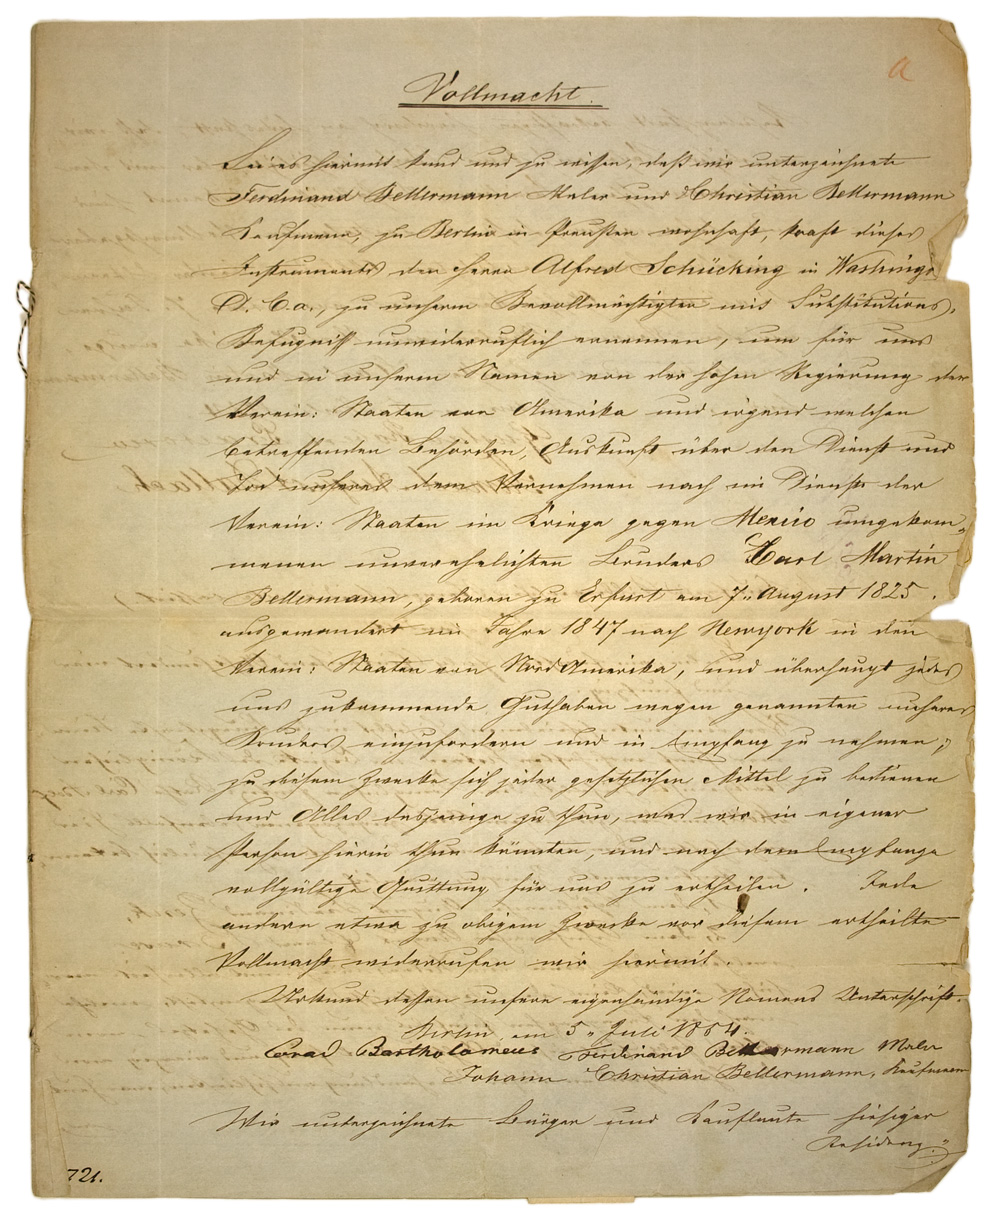 a
Vollmacht.
Sei es hiermit kund und zu wissen, daß wir unterzeichnete
Ferdinand Bellermann Maler und Christian Bellermann
Kaufmann, zu Berlin in Preußen wohnhaft, kraft dieses
Instruments den Herrn Alfred Schücking in Washingt
D. Co., zu unserm Bevollmächtigten mit Substitutions,
Befugniß unwiderruflich ernennen, um für uns
und in unserm Namen von der hohen Regierung der
Verein: Staaten von Amerika und irgend welchen
betreffenden Behörden, Auskunft über den Dienst und
Tod unseres dem Vernehmen nach im Dienste der
Verein: Staaten im Kriege gegen Mexico umgekom„
menen unverehelichten Bruders Carl Martin
Bellermann, geboren zu Erfurt am 7„ August 1825.
ausgewandert im Jahre 1847 nach Newyork in den
Verein: Staaten von NordAmerika, und überhaupt jedes
uns zukommende Guthaben wegen genannten unseres
Bruders einzufordern und in Empfang zu nehmen,
zu diesem Zwecke sich jeder gesetzlichen Mittel zu bedienen
und Alles dasjenige zu thun, was wir in eigener
Person hierin thun könnten, und nach dem Empfange
vollgültige Quittung für uns zu ertheilen. Jede
andere etwa zu obigem Zwecke vor diesem ertheilte
Vollmacht widerrufen wir hiermit.
Urkund dessen unsere eigenhändige Namens Unterschrift.
Berlin am 5„ Juli 1854.
Conrad Bartholomeus Ferdinand Bellermann Maler
Johann Christian Bellermann, Kaufmann
Wir unterzeichnete Bürger und Kaufleute hiesiger
Residenz
721.